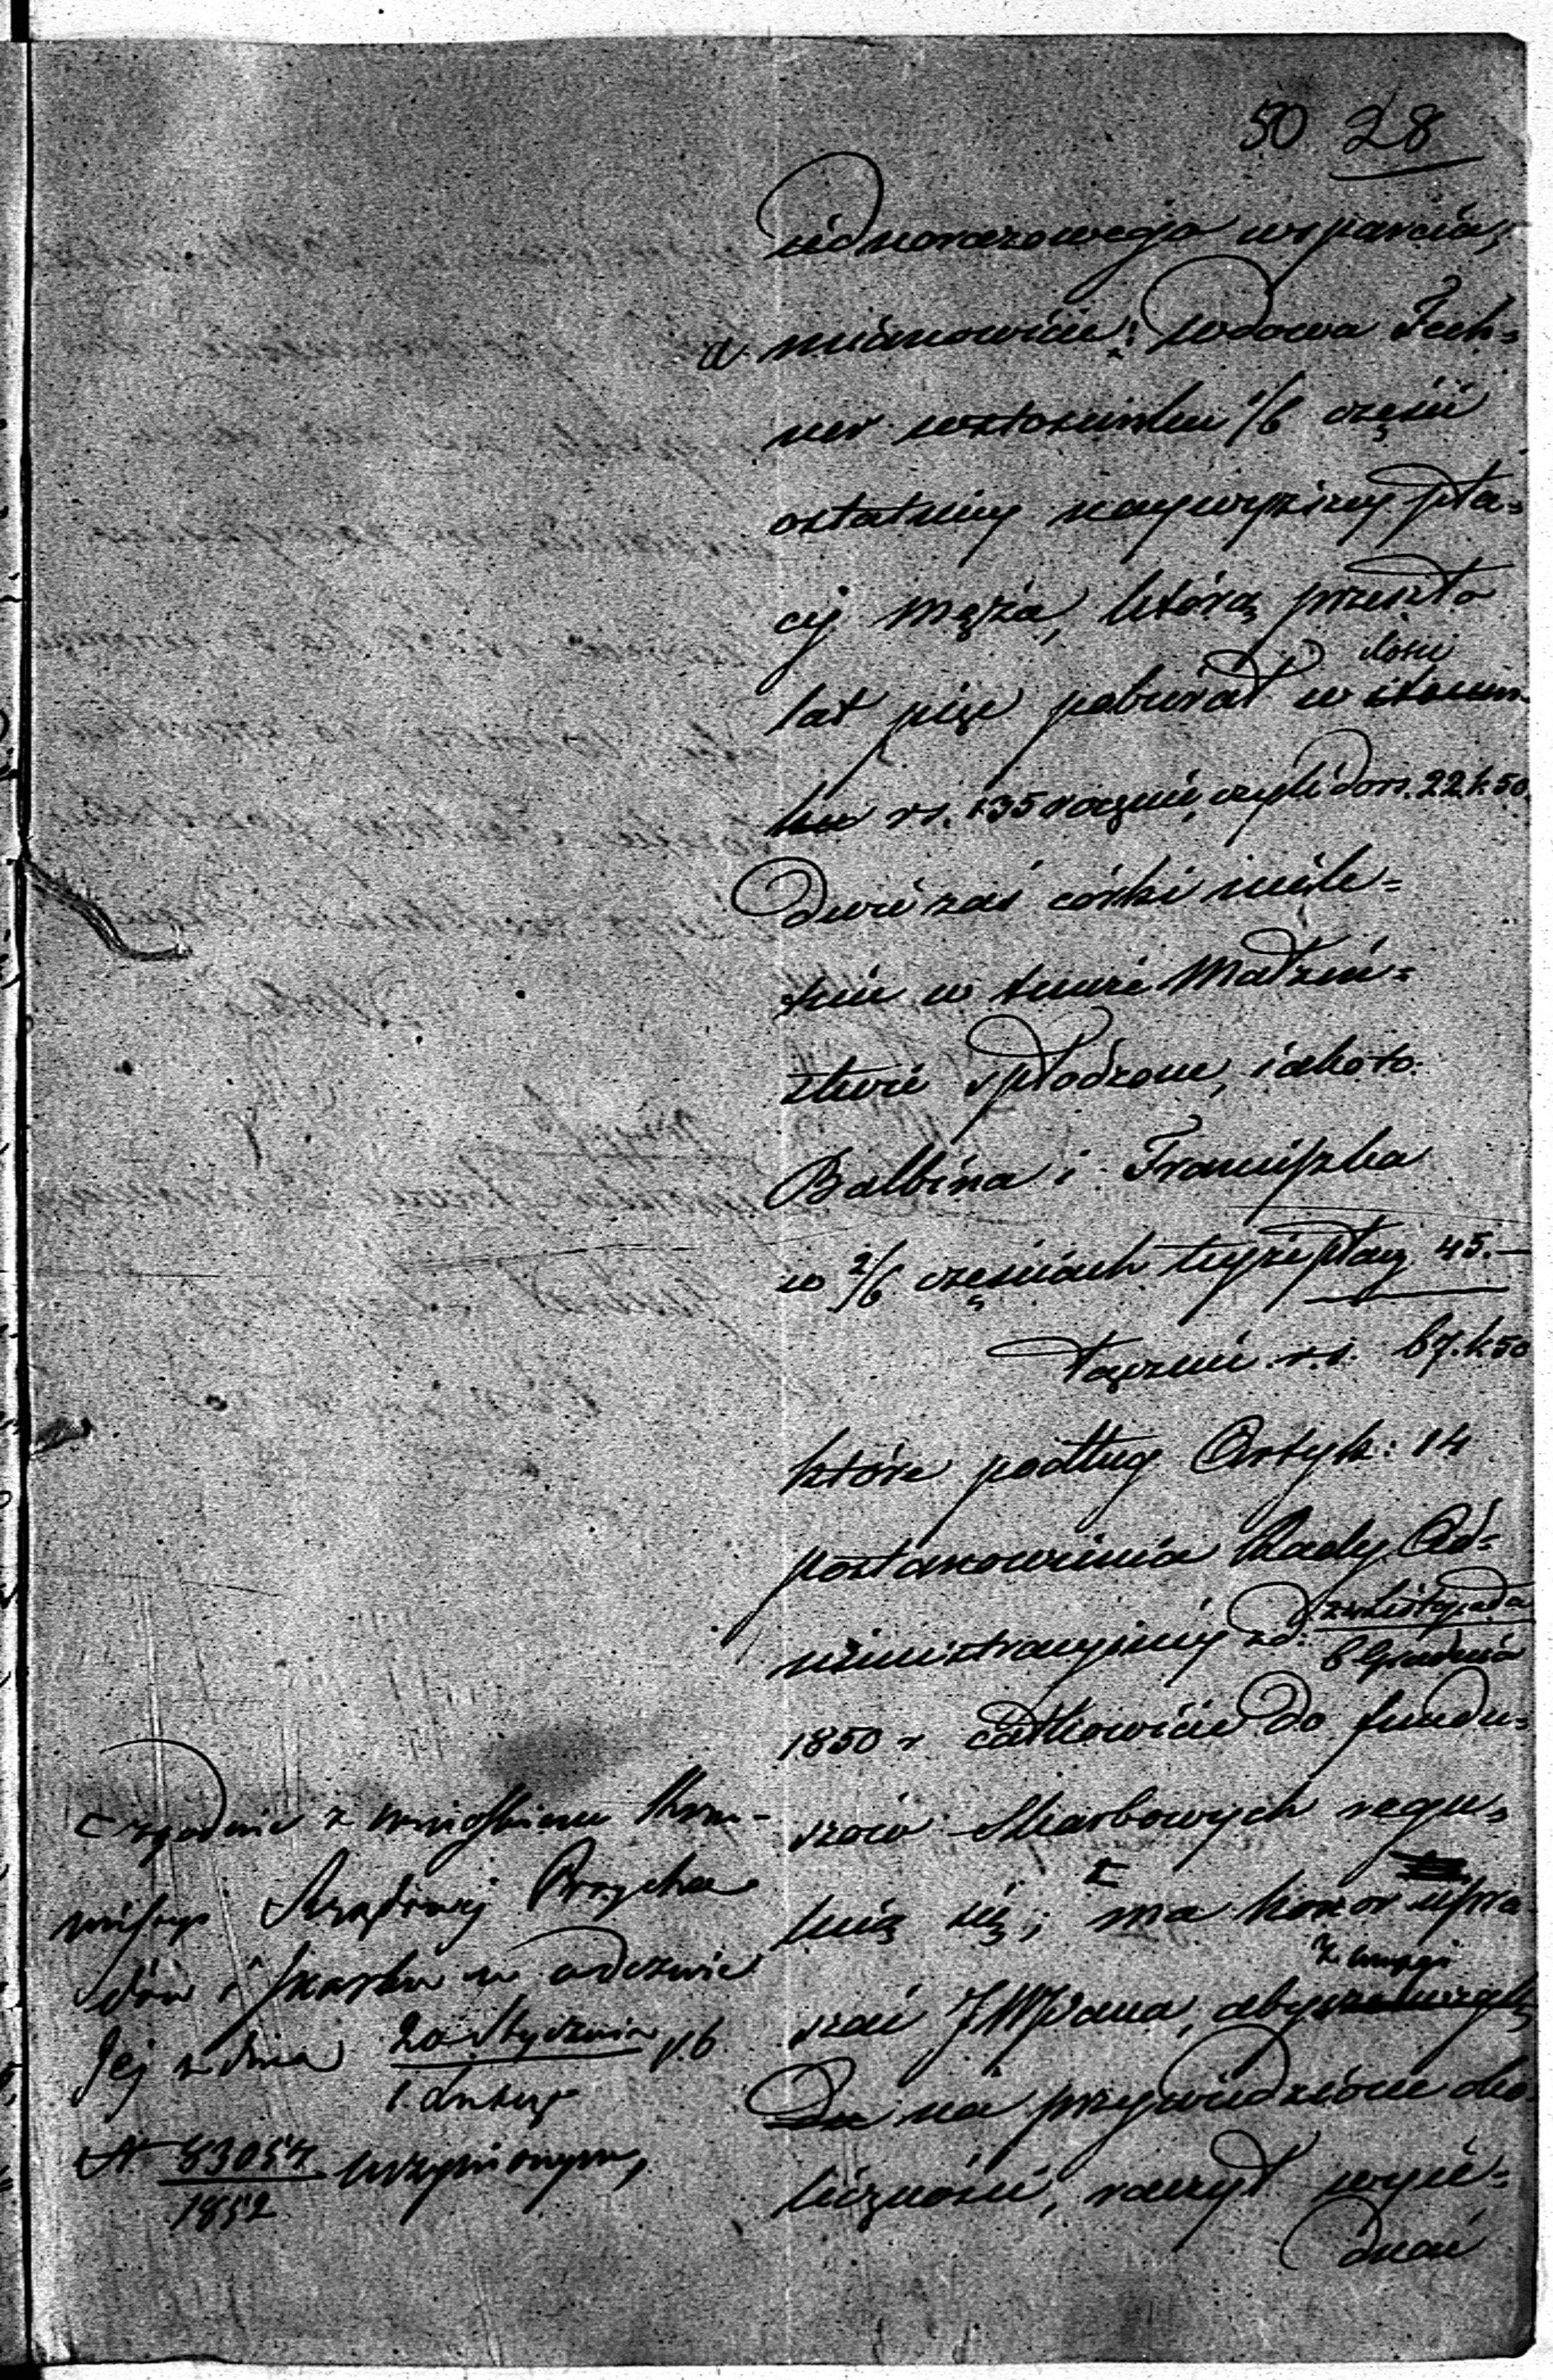 50 28
iednorazowego wsparcia,
a mianowicie: wdowa Fech=
ner wstosunku 1/6 części
ostatniey naywyższey pła=
cy męża, którą przeszło
lat pięć pobierał w ilości stosun
ku rs. 135 rocznie, czyli do rs. 22 k 50.
Dwie zaś córki nielet=
nie w temże Małżeń=
stwie spłodzone, iakoto:
Balbina i Franciszka
w 2/6 częściach teyże płacy 45.—
Łącznie rs. 67. k 50
które podług Artyk: 14
postanowienia Rady Ad=
ministracyjney z d: 24 Listopada
6 Grudnia
1850 r całkowicie do fundu=
szów Skarbowych regu=
luią się; ma honor upra
szać JWPana, aby z uwagi
na przywiedzione oko
liczności, raczył wyie=
dnać
zgodnie z wnioskiem Kom-
missyi Rządowej Przycho
dów i Skarbu w odezwie
Jej z dnia 20 Stycznia r. b.
1 Lutego
N 83054
1852 uczynionym,